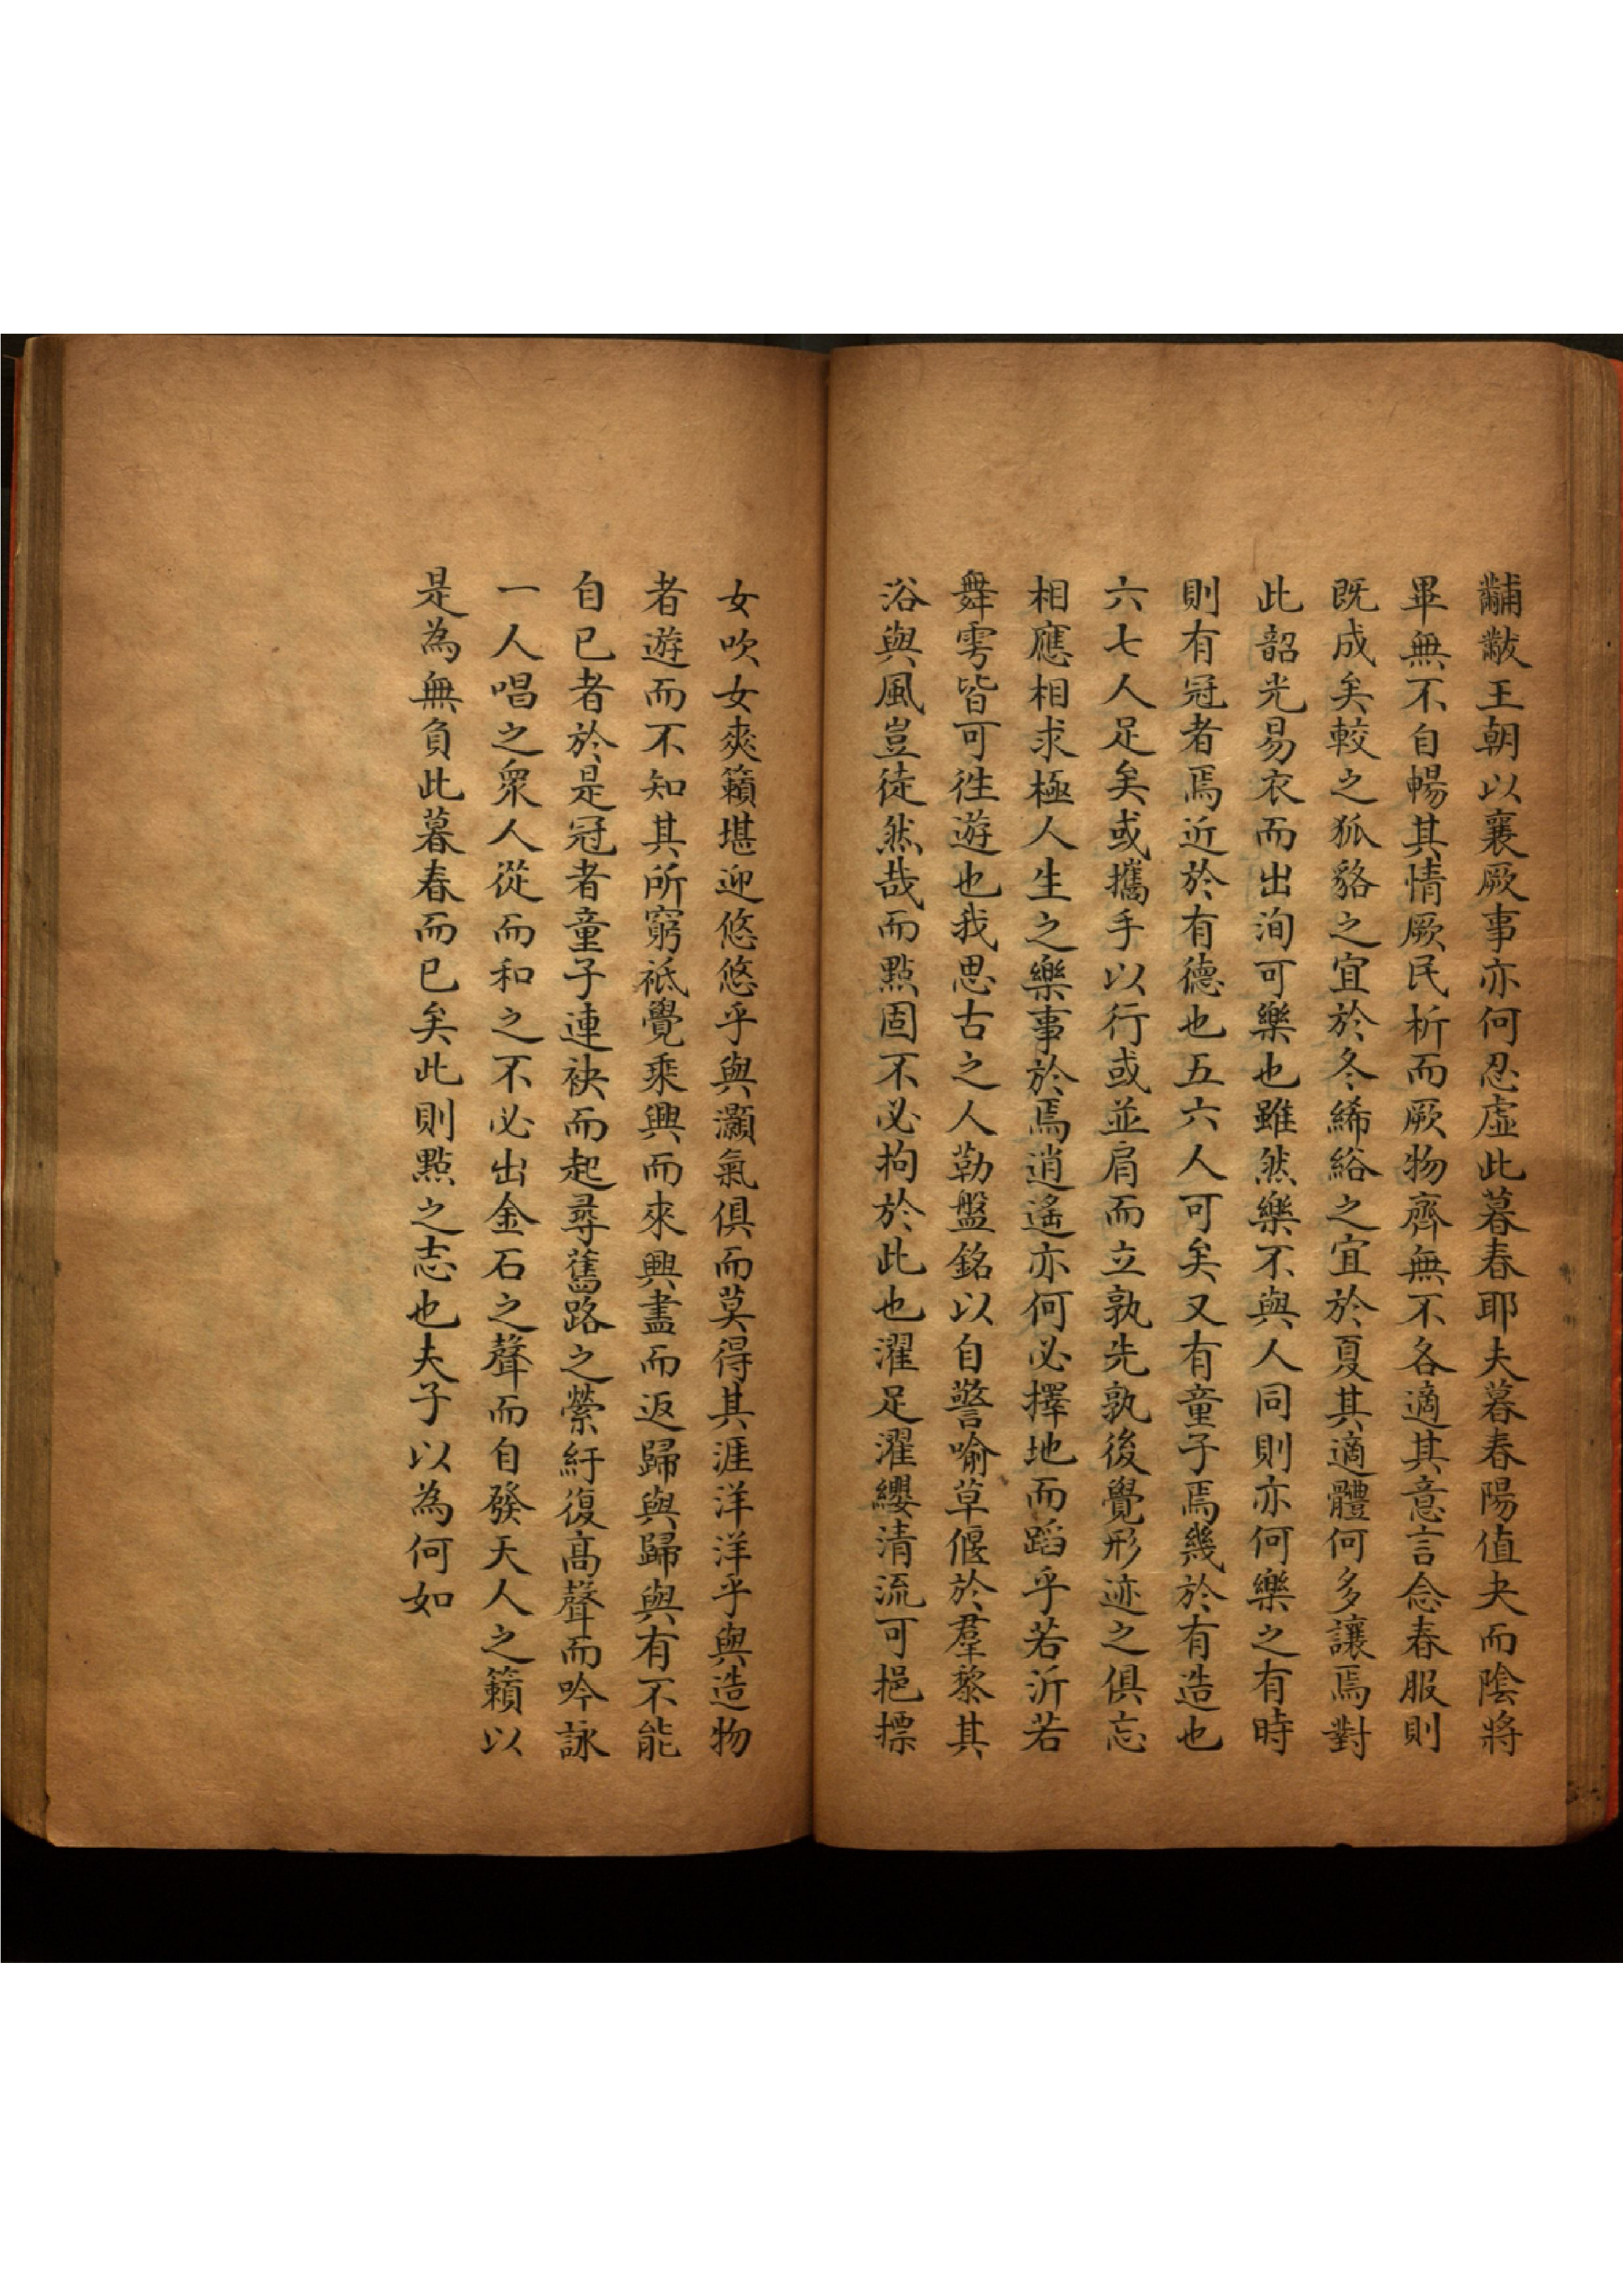 黼黻王朝以襄厥事亦何忍虛此暮春耶夫暮春陽值夬而陰將
畢無不自暢其情厥民析而厥物齊無不各適其意言念春服則
既成矣較之狐貉之宜於冬絺綌之宜於夏其適體何多讓焉對
此韶光易衣而出洵可樂也雖然樂不與人同則亦何樂之有時
則有冠者焉近於有德也五六人可矣又有童子焉幾於有造也
六七人足矣或攜手以行或並肩而立孰先孰後覺形迹之俱忘
相應相求極人生之樂事於焉逍遙亦何必擇地而蹈乎若沂若
舞雩皆可徃遊也我思古之人勒盤銘以自警喻草偃於羣黎其
浴與風豈徒然哉而點固不必拘於此也濯足濯纓清流可挹摽
女吹女爽籟堪迎悠悠乎與灝氣俱而莫得其涯洋洋乎與造物
者遊而不知其所窮祇覺乘興而來興盡而返歸與歸與有不能
自已者於是冠者童子連袂而起尋舊路之縈紆復高聲而吟詠
一人唱之衆人從而和之不必出金石之聲而自發天人之籟以
是為無負此暮春而已矣此則點之志也夫子以為何如